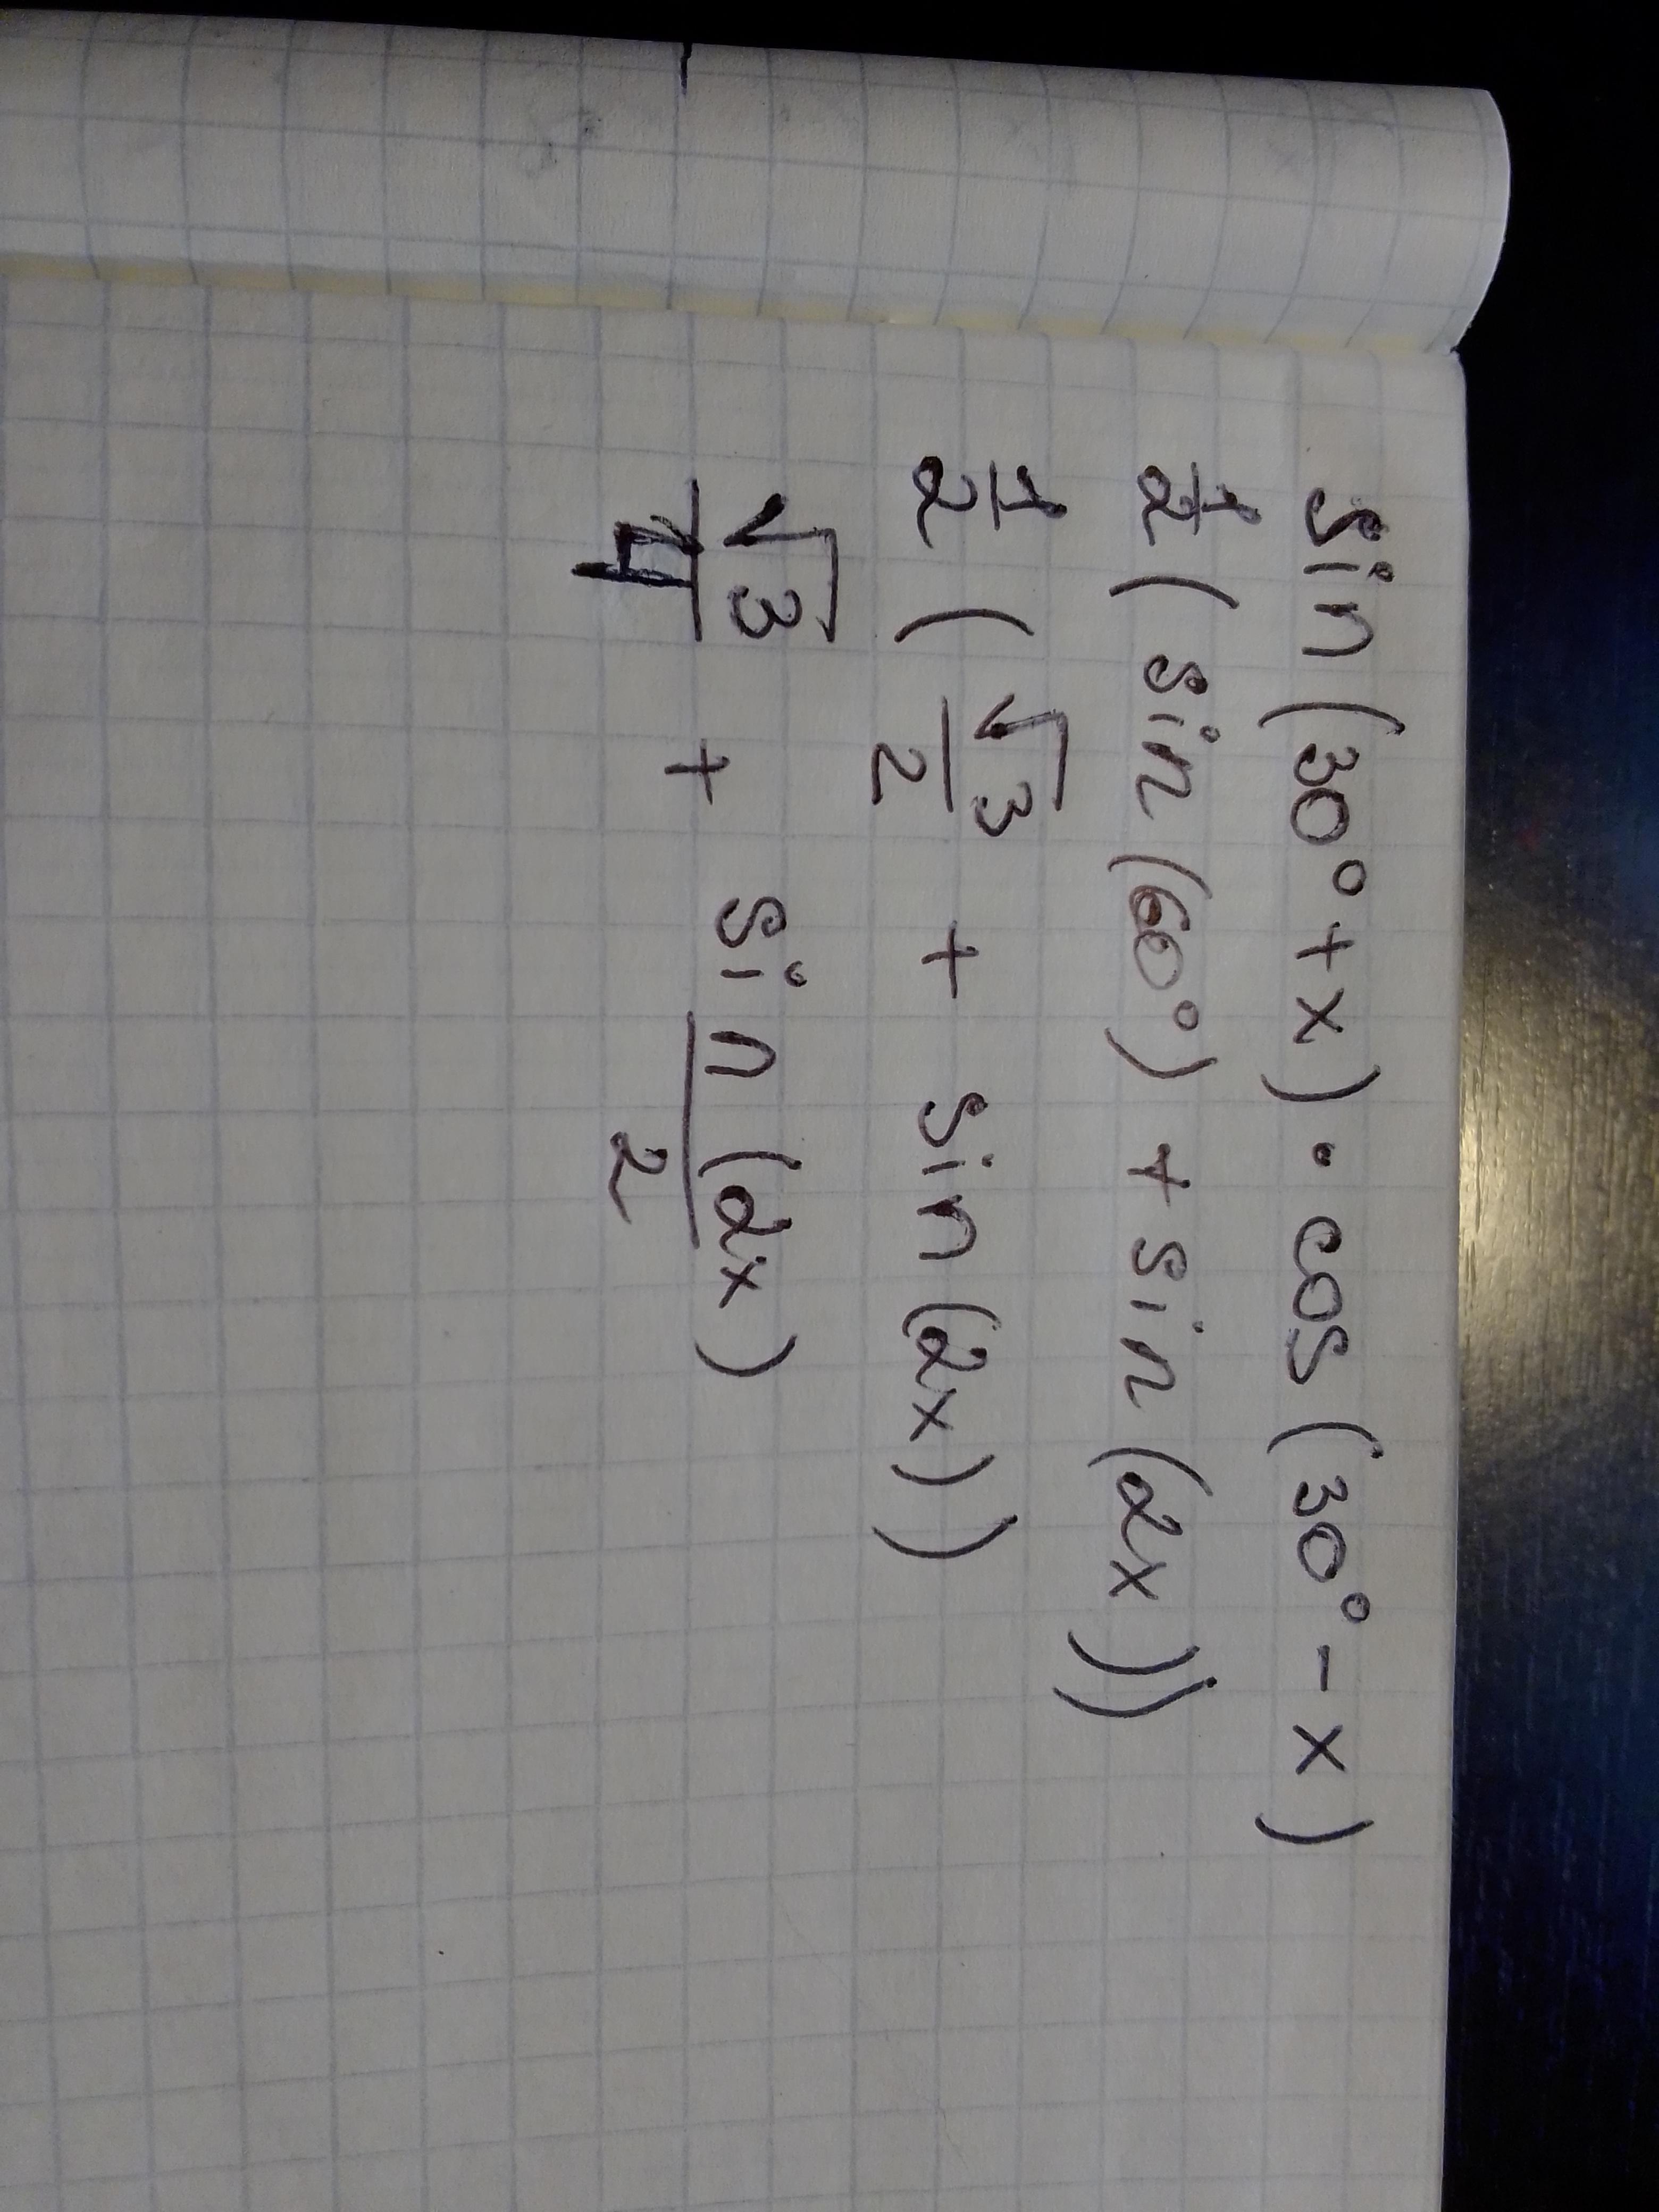 sin(30°+x)·cos(30°-x)
1/2(sin(60°)+sin(2x))
1/2(√3/2 + sin(2x))
√3/4 + sin(2x)/2